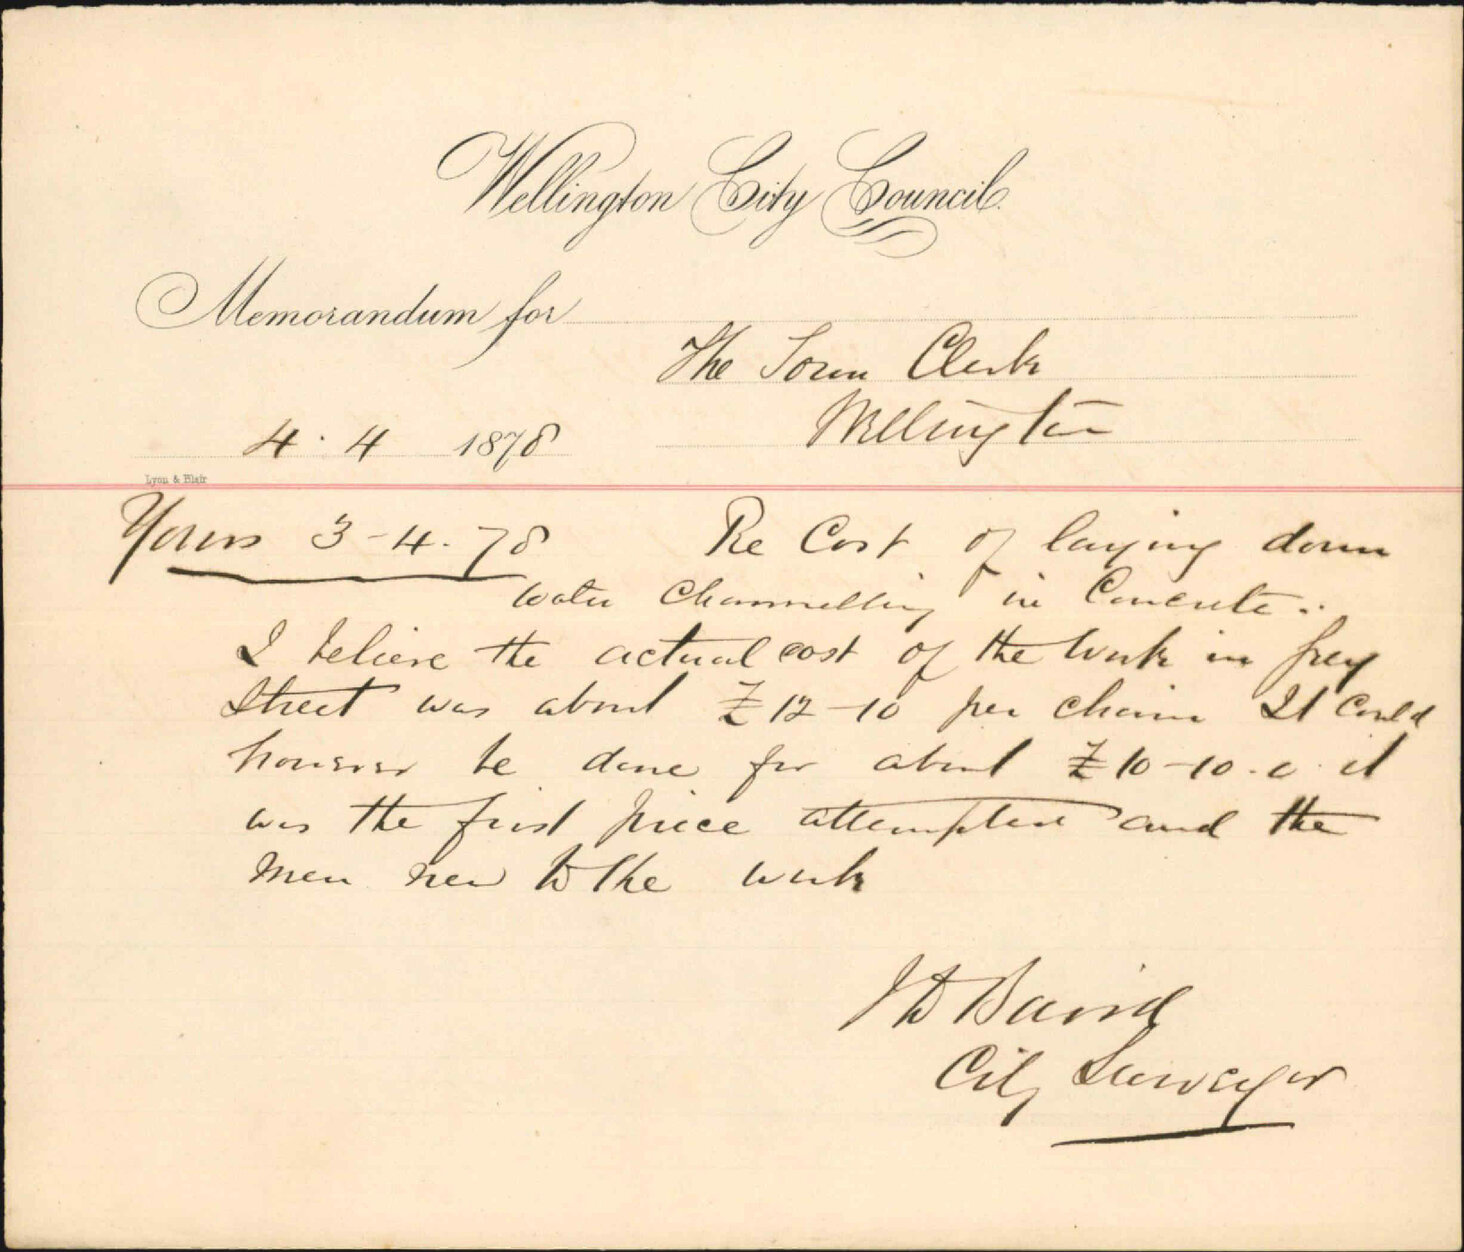 Wellington City Council.
Memorandum for
The Town Clerk
Wellington
4 · 4 1878
Lyon & Blair
Yours 3-4.78 Re Cost of laying down
water channelling in Concrete.
I believe the actual cost of the work in Grey
Street was about £12-10 per chain It could
however be done for about £10-10.0. it
was the first piece attempted and the
men new to the work
J D Baird
City Surveyor